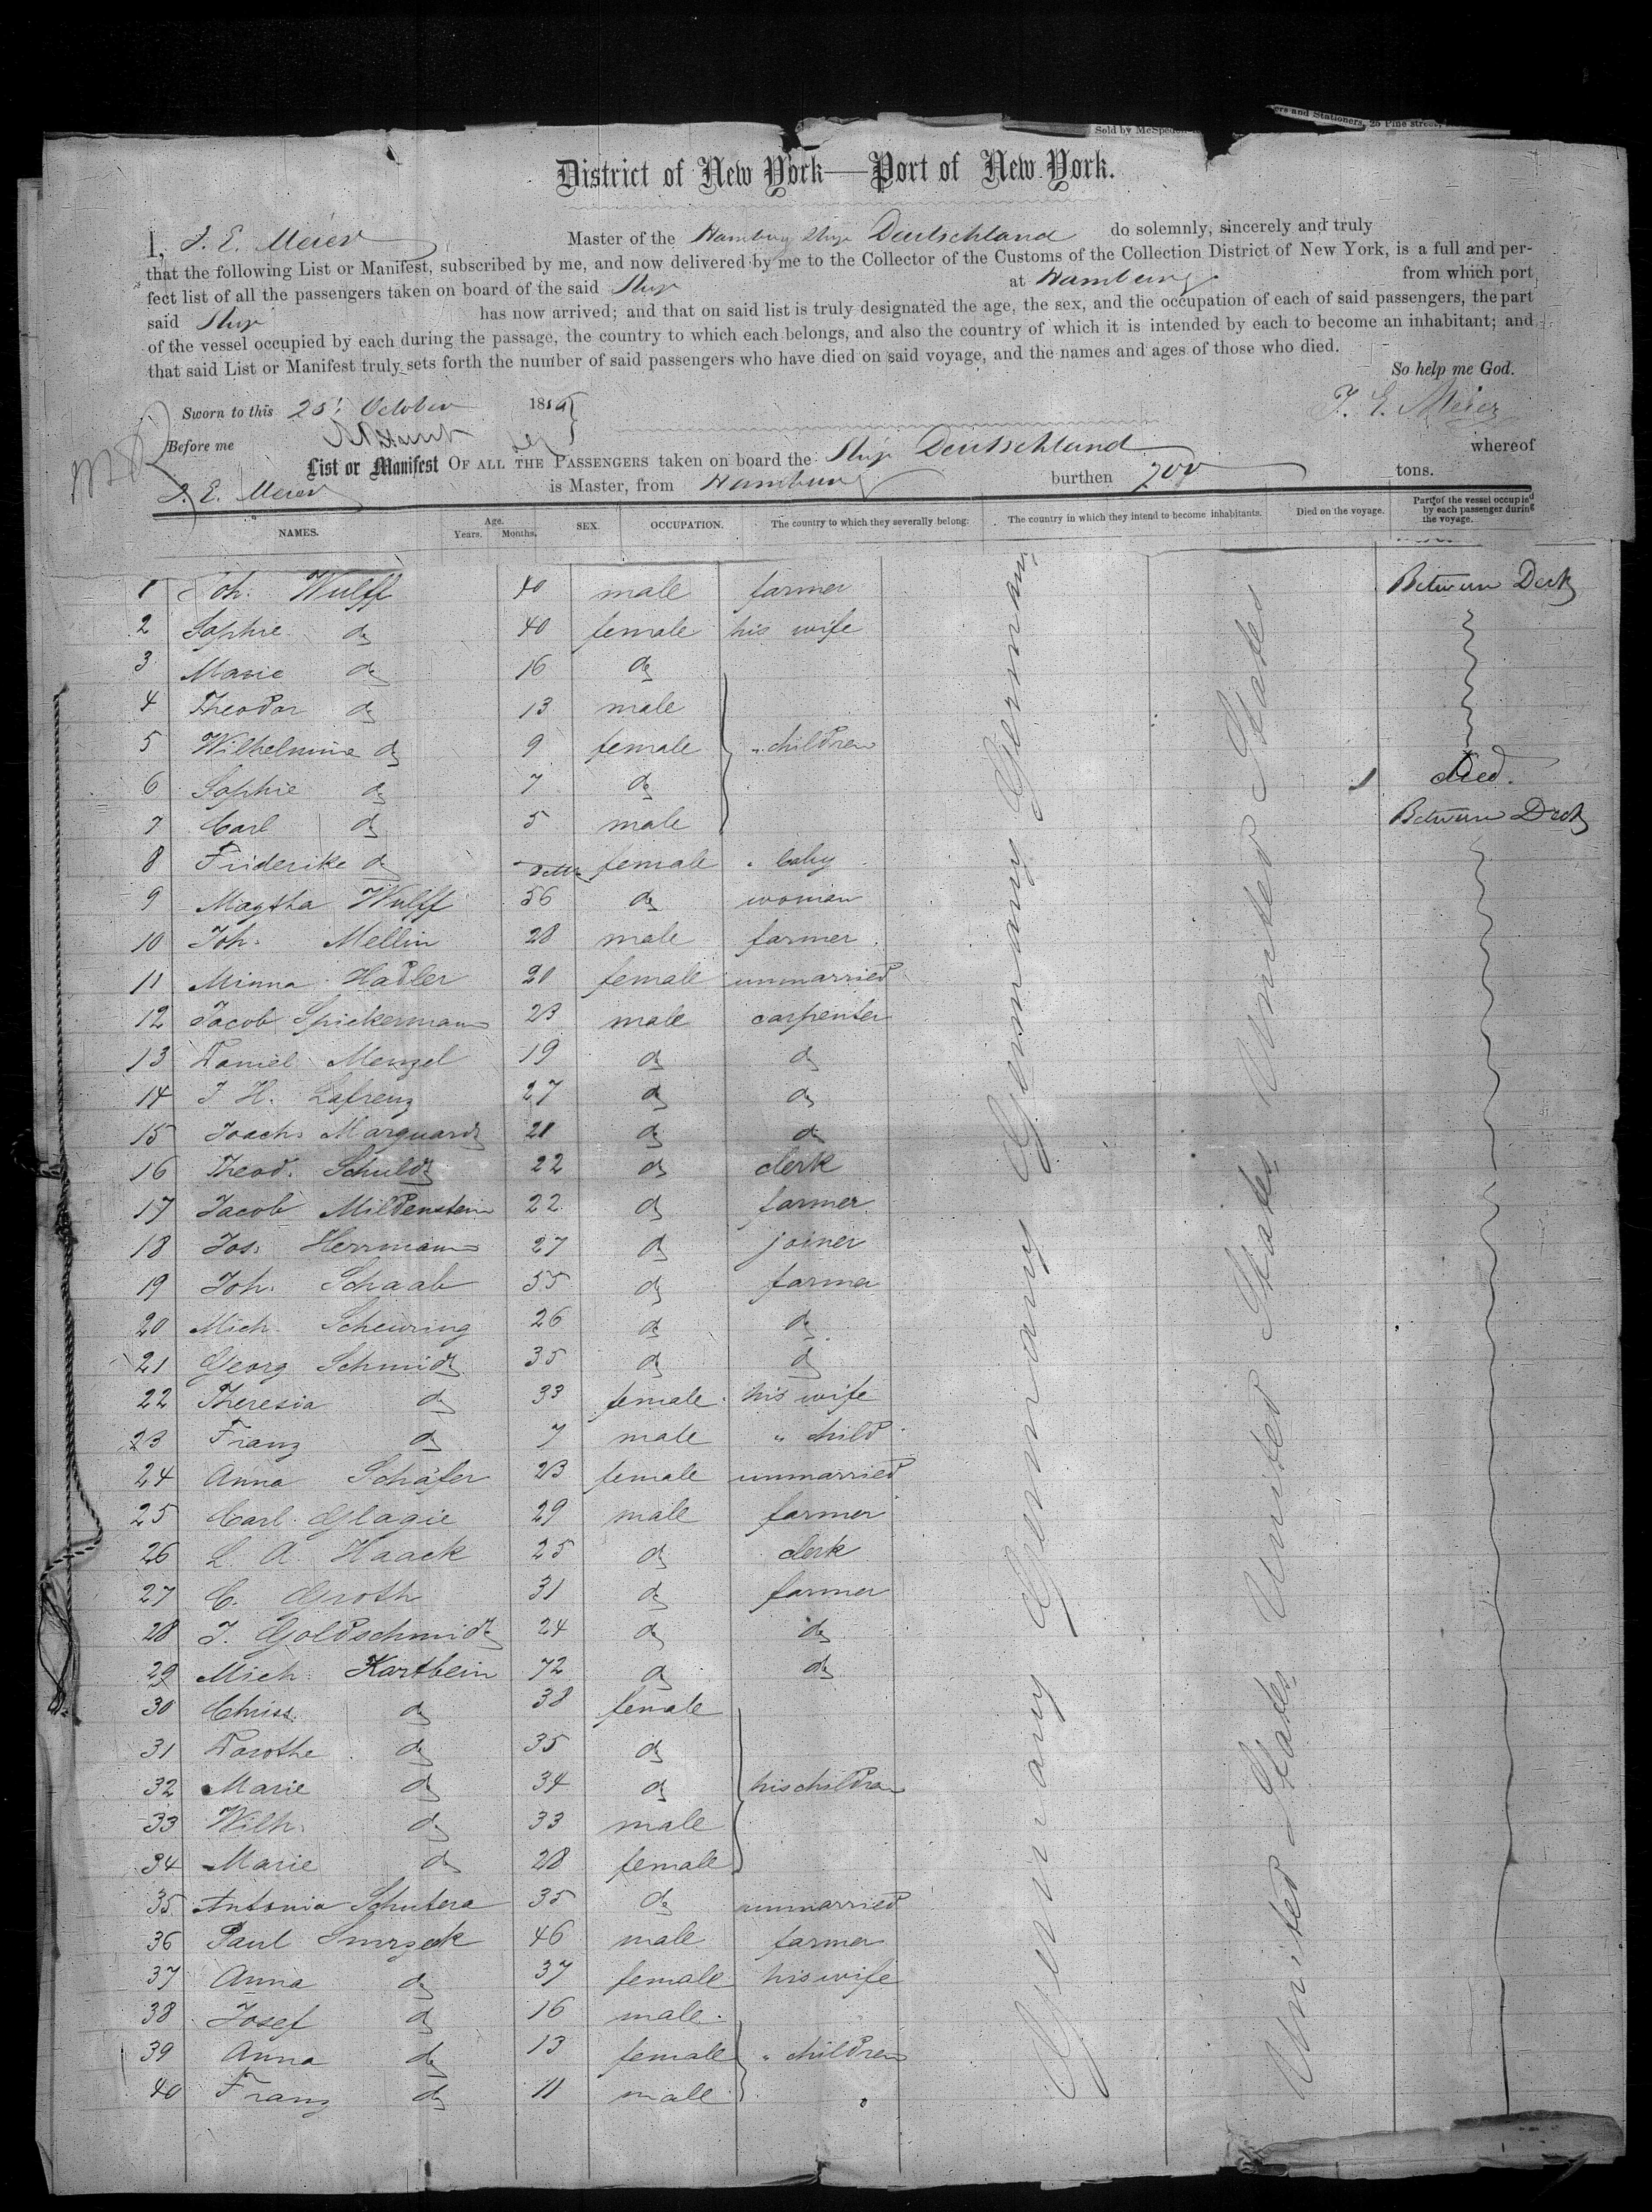 ers and Stationers, 25 Pine street,
Sold by McSpedon
District of New York—Port of New York.
I, J. E. Meier Master of the Hamburg Ship Deutschland do solemnly, sincerely and truly
that the following List or Manifest, subscribed by me, and now delivered by me to the Collector of the Customs of the Collection District of New York, is a full and per-
fect list of all the passengers taken on board of the said Ship at Hamburg from which port
said Ship has now arrived; and that on said list is truly designated the age, the sex, and the occupation of each of said passengers, the part
of the vessel occupied by each during the passage, the country to which each belongs, and also the country of which it is intended by each to become an inhabitant; and
that said List or Manifest truly sets forth the number of said passengers who have died on said voyage, and the names and ages of those who died.
So help me God.
Sworn to this 25 October 18 J. E. Meier
Before me
List or Manifest OF ALL THE PASSENGERS taken on board the Ship Deutschland whereof
J. E. Meier is Master, from Hamburg burthen 700 tons.
NAMES. Age. Years. Months. SEX. OCCUPATION. The country to which they severally belong. The country in which they intend to become inhabitants. Died on the voyage. Part of the vessel occupied by each passenger during the voyage.
1 Joh. Wulff 40 male farmer Between Deck
2 Sophie do 40 female his wife
3 Marie do 16 do
4 Theodor do 13 male
5 Wilhelmine do 9 female " children
6 Sophie do 7 do 1 died.
7 Carl do 5 male Between Deck
8 Friderike do female " baby
9 Magtha Wulff 56 do woman
10 Joh. Mellin 28 male farmer
11 Minna Hadler 20 female unmarried
12 Jacob Spickermann 23 male carpenter
13 Daniel Menzel 19 do do
14 J. H. Lafrenz 27 do do
15 Joach. Marquardt 21 do do
16 Theod. Schuldt 22 do clerk
17 Jacob Mildenstein 22 do farmer
18 Jos. Herrmann 27 do joiner
19 Joh. Schaab 55 do farmer
20 Mich. Scheuring 26 do do
21 Georg Schmidt 35 do do
22 Theresia do 33 female his wife
23 Franz do 7 male " child
24 Anna Schäfer 23 female unmarried
25 Carl Glagie 29 male farmer
26 L. A. Haack 25 do clerk
27 C. Groth 31 do farmer
28 J. Goldschmidt 24 do do
29 Mich. Kartbein 72 do do
30 Chriss. do 38 female
31 Dorothe do 35 do
32 Marie do 34 do his children
33 Wilh. do 33 male
34 Marie do 28 female
35 Antonia Schutera 35 do unmarried
36 Paul Smrzek 46 male farmer
37 Anna do 37 female his wife
38 Josef do 16 male
39 Anna do 13 female " children
40 Franz do 11 male
Germany Germany Germany Germany
United States United States United States